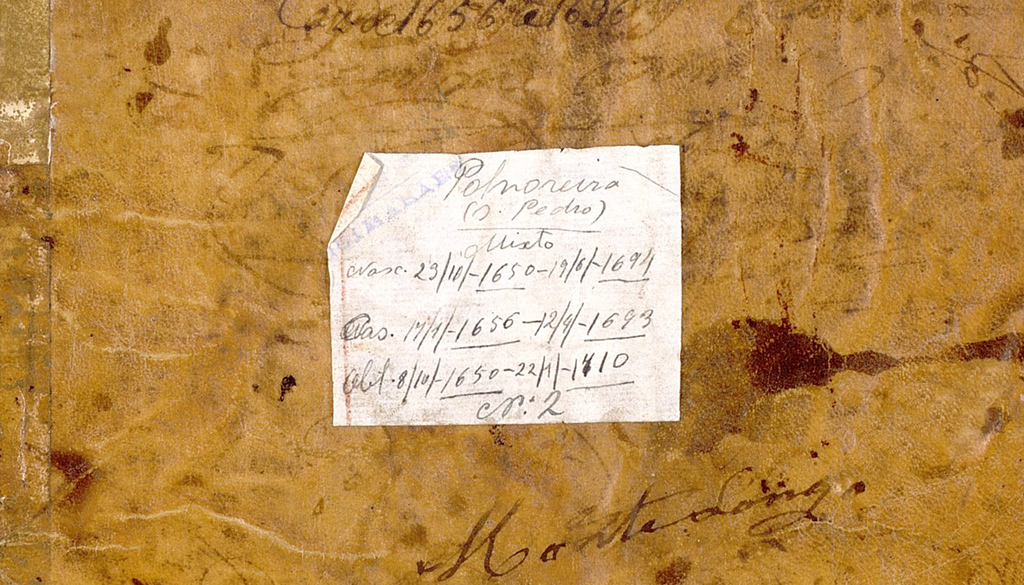 de 1656 a 1696
Polvoreira
(S. Pedro)
Mixto
Nasc. 23/10/-1650-19/6/-1694
Cas. 17/1/-1656-12/9/-1693
Obit. 8/10/-1650-22/1/-1710
Nº 2
Monte Longo